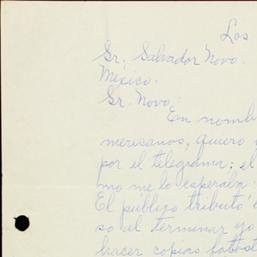 Los
Sr. Salvador Novo.
México.
Sr. Novo:
En nomb
mericanos, quiero
por el telegrama; el
mo me lo esperaba.
El público tributó
so al terminar yo
hacer copias fotost